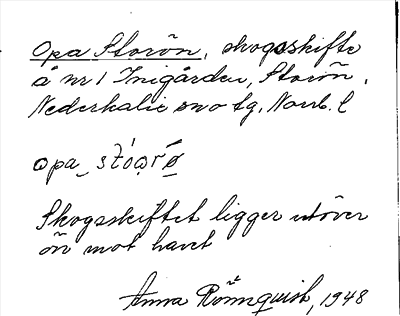 Opa Storön, skogsskifte
å nr 1 Inigården, Storön,
Nederkalix sno tg, Norrb. l
ɷpa‿stóɷrø̱
Skogsskiftet ligger utöver
ön mot havet
Anna Rönnquist, 1948